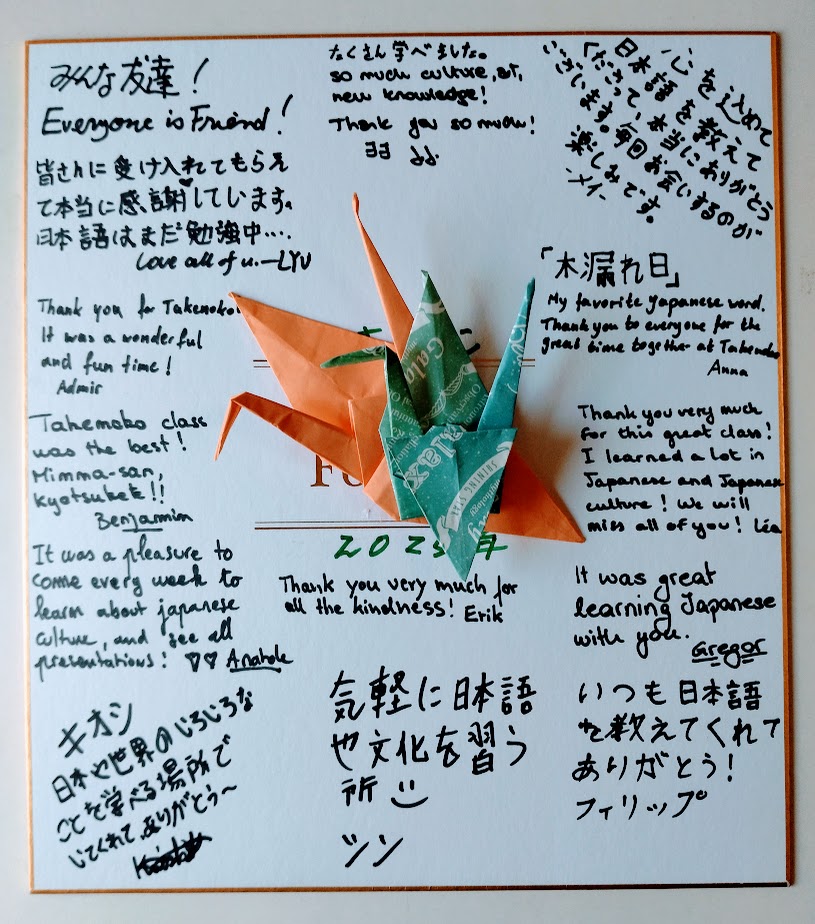 みんな友達！
Everyone is Friend!
皆さんに受け入れてもらえ
て本当に感謝しています。
日本語はまだ勉強中….
Love all of u. —LYU
たくさん学べました。
so much culture, art,
new knowledge!
Thank you so much!
心を込めて
日本語を教えて
「ださって、本当にありがとう
ございます。毎回お会いするのが
楽しみです。
-メイ-
Thank you for Takenoko
It was a wonderful
and fun time!
Admir
「木漏れ日」
My favorite Japanese word.
Thank you to everyone for the
great time together at Takenoko
Anna
Takemoko class
was the best!
Mimma-san,
kyotsukete!!
Benjamin
Thank you very much
for this great class!
I learned a lot in
Japanese and Japanese
culture! We will
miss all of you! Léa
It was a pleasure to
come every week to
learn about japanese
culture, and see all
presentations! ♡♡ Anatole
2025年
Thank you very much for
all the kindness! Erik
It was great
learning Japanese
with you.
Gregor
キオシ
日本や世界のいろいろな
ことを学べる場所で
いてくれて、ありがとう〜
気軽に日本語
や文化を習う
所 ☺
ツン
いつも日本語
を教えてくれて
ありがとう！
フィリップ
Gala
SHINING STAR